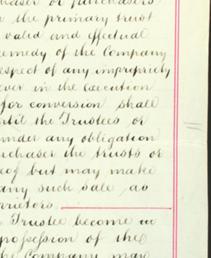 chaser or purchasers
the primary trust
valid and effectual
remedy of the Company
respect of any impropriety
ever in the execution
for conversion shall
until the Trustees or
under any obligation
purchaser the trusts or
eof but may make
any such sale as
prietors.
Trustee become in
possession of the
the Company may